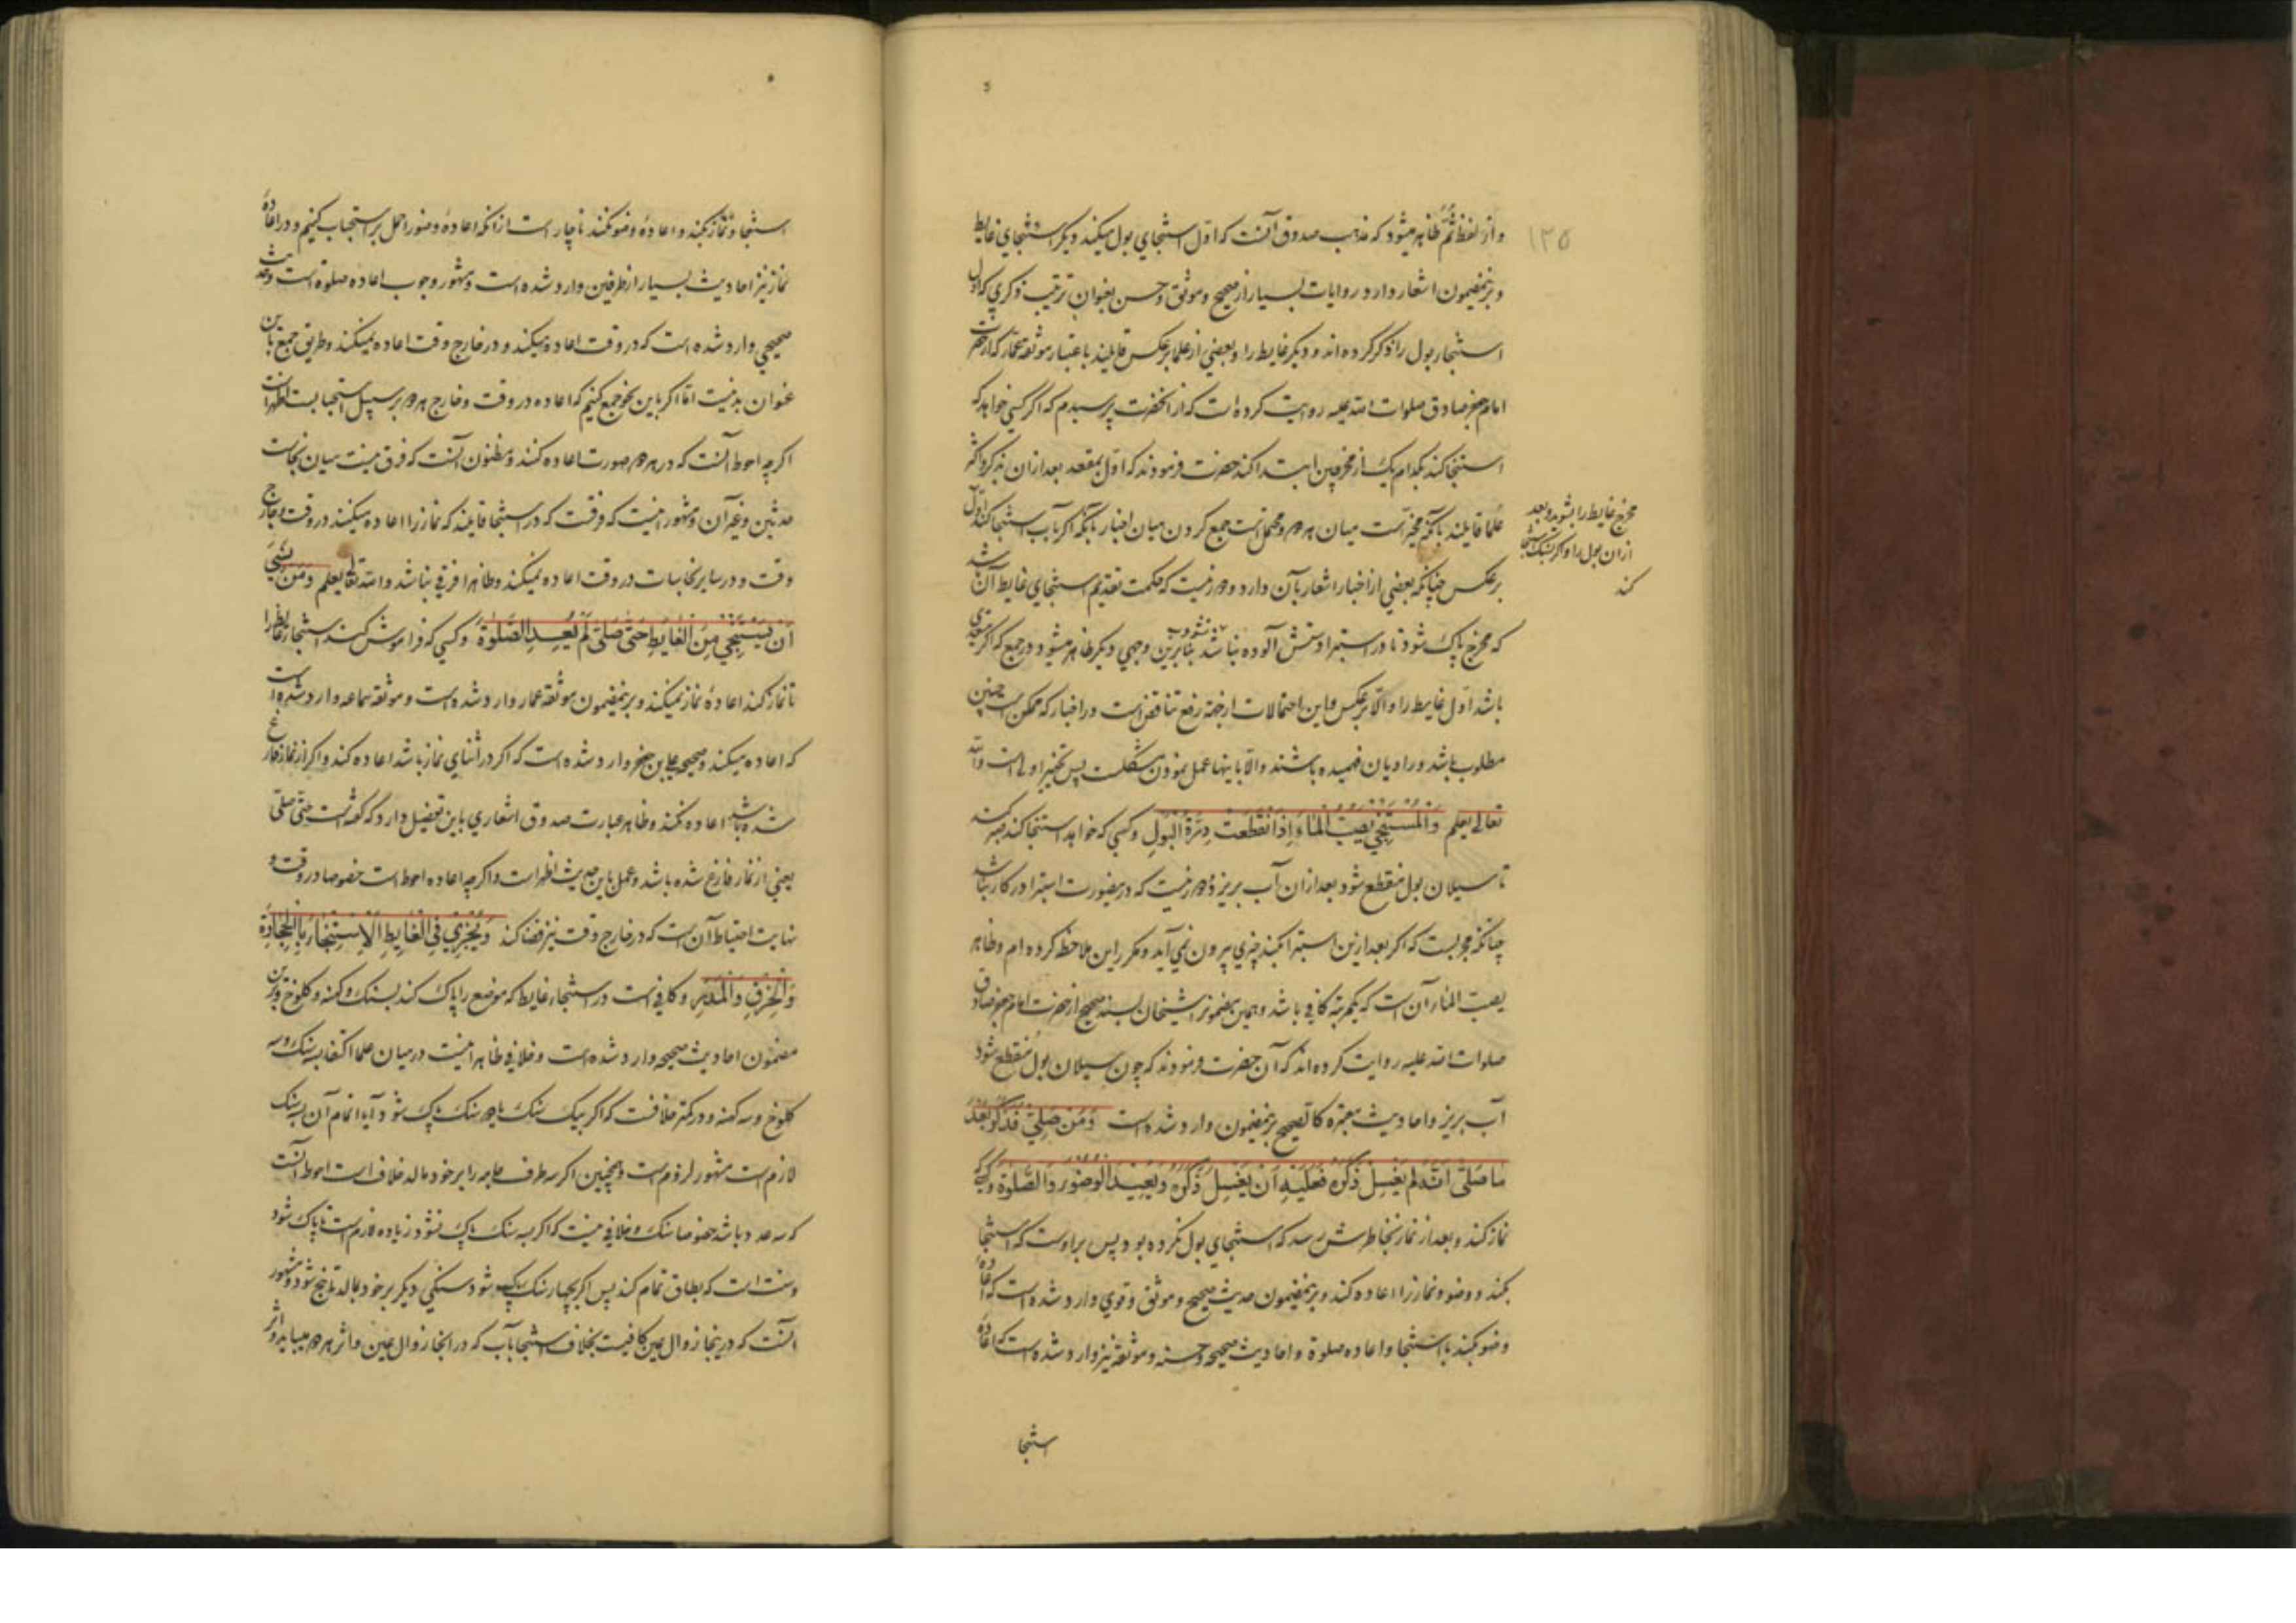 ۱۲۵
و از لفظ ثمّ ظاهر میشود که مذهب صدوق آنست که اوّل استنجاي بول میکنند و دیگر استنجاي غایط
و برینمضمون اشعار دارد روایات بسیار از صحیح و موثق و حسن بعنوان ترتیب ذکري که اول
استنجاء بول را ذکر کرده اند و دیگر غایط را و بعضي از علما برعکس قایلند باعتبار موثقه عمّار که از حضرت
امام جعفر صادق صلوات الله علیه روایت کرده است که از انحضرت پرسیدم که اگر کسي خواهد که
استنجا کند بکدام یک از مخرجین ابتدا کند حضرت فرمودند که اوّل بمقعد بعد از ان بذکر و اکثر
علما قایلند بآنکه مخیّر است میان هر دو و محتمل است جمع کردن میان اخبار بآنکه اگر بآب استنجا کند اوّل
مخرج غایط را بشوید و بعد
ازان بول را و اگر بسنک استنجا
کند
برعکس چنانکه بعضي از اخبار اشعار بآن دارد و دور نیست که حکمت تقدیم استنجاي غایط آن باشد
که مخرج پاک شود تا در استبرا دستش آلوده نباشد بنابرین وجهي دیگر ظاهر میشود در جمع که اگر
باشد اوّل غایط را و الّا برعکس و این احتمالات از جهة رفع تناقض است در اخبار که ممکن است چنین
مطلوب باشد و راویان فهمیده باشند و الّا باینها عمل نمودن مشکلست پس تخییر اولی است والله
تعالی یعلم وَالْمُسْتَنْجِي یَصُبُّ الْمَاءَ إِذَا انْقَطَعَتْ دِرَّةُ الْبَوْلِ و کسي که خواهد استنجا کند صبر کند
تا سیلان بول منقطع شود بعد ازان آب بریزد و دور نیست که درینصورت استبرا در کار نباشد
چنانکه مجربست که اگر بعد ازین استبرا کنند چیزي بیرون نمي آید و مکرر این ملاحظه کرده ام و ظاهر
یصبّ الماء آن است که یکمرتبه کافي باشد و همین مضمون را شیخان بسند صحیح از حضرت امام جعفر صادق
صلوات الله علیه روایت کرده اند که آن حضرت فرمودند که چون سیلان بول منقطع شود
آب بریز و احادیث معتبره کالصحیح برینمضمون وارد شده است وَمَنْ صَلَّی فَذَکَرَ بَعْدَ
مَا صَلَّی أَنَّهُ لَمْ یَغْسِلْ ذَکَرَهُ فَعَلَیْهِ أَنْ یَغْسِلَ ذَکَرَهُ وَیُعِیدَ الْوُضُوءَ وَالصَّلٰوةَ و کسي که
نماز کند و بعد از نماز بخاطرش رسد که استنجاي بول نکرده بود پس بر اوست که استنجا
بکند و وضو و نماز را اعاده کند و برینمضمون حدیث صحیح و موثق و قوي وارد شده است که اعاده
وضو بکند با استنجا و اعاده صلوة و احادیث صحیحه و حسنه و موثقه نیز وارد شده است که اعادهٔ
استنجا
استنجا و نماز بکند و اعادهٔ وضو نکند ناچار است از انکه اعادهٔ وضو را حمل بر استحباب کنیم و در اعادهٔ
نماز نیز احادیث بسیار از طرفین وارد شده است و مشهور وجوب اعاده صلوة است و حدیث
صحیحي وارد شده است که در وقت اعاده میکند و در خارج وقت اعاده نمیکند و طریق جمع باین
عنوان بد نیست امّا اگر باین نحو جمع کنیم که اعاده در وقت و خارج هر دو بر سبیل استحبابست اظهر است
اکرچه احوط آنست که در هر دو صورت اعاده کنند و مظنون آنست که فرق نیست میان نجاست
حدثین و غیر آن و مشهور اینست که فرقست که در استنجا قایلند که نماز را اعاده میکند در وقت و خارج
وقت و در سایر نجاسات در وقت اعاده نمیکند و ظاهرا فرقي نباشد والله تعالی یعلم وَمَنْ نَسِيَ
أَنْ یَسْتَنْجِيَ مِنَ الْغَایِطِ حَتَّی صَلَّی لَمْ یُعِدِ الصَّلٰوةَ و کسي که فراموش کند استنجاء غایط را
تا نماز کند اعادهٔ نماز نمیکند و برینمضمون موثقه عمار وارد شده است و موثقه سماعه وارد شده است
که اعاده میکند و صحیحه علي بن جعفر وارد شده است که اگر در اثناي نماز باشد اعاده کند و اگر از نماز فارغ
شده باشد اعاده نکند و ظاهر عبارت صدوق اشعاري باین تفصیل دارد که گفته است حتّی صلّی
یعني از نماز فارغ شده باشد و عمل باین حدیث اظهر است و اکرچه اعاده احوط است خصوصا در وقت و
نهایت احتیاط آن است که در خارج وقت نیز قضا کند وَیُجْزِي فِي الْغَایِطِ الْاِسْتِنْجَاءُ بِالْحِجَارَةِ
وَالْخِرَقِ وَالْمَدَرِ و کافي است در استنجاء غایط که موضع را پاک کند بسنک و کهنه و کلوخ و برین
مضمون احادیث صحیحه وارد شده است و خلافي ظاهرا نیست در میان علما اکتفا بسه سنک و سه
کلوخ و سه کهنه و در کمتر خلافست که اگر بیک سنک یا دو سنک پاک شود آیا اتمام آن بسه سنک
لازم است مشهور لزوم است و همچنین اگر سه طرف جامه را بر خود مالد خلاف است احوط آنست
که سه عدد باشد خصوصا سنک و خلافي نیست که اگر بسه سنک پاک نشود زیاده لازم است تا پاک شود
و سنت است که بطاق تمام کند پس اگر بچهار سنک پاک شود سنکي دیگر بر خود بمالد تا پنج شود و مشهور
آنست که درینجا زوال عین کافیست بخلاف استنجا بآب که در انجا زوال عین و اثر هر دو میباید و اثر